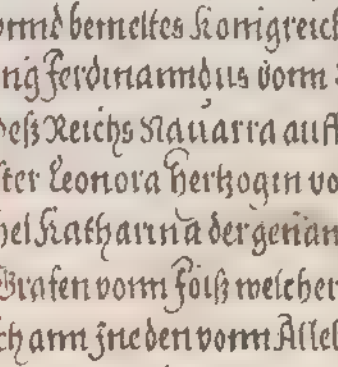 vnnd bemeltes Konigreich
nig Ferdinanndus vonn
deß Reichs Nauarra auff
ster Leonora hertzogin vo
hel Katharina der genan
Grafen vonn Foiß welcher
ch ann jne den vonn Alleb